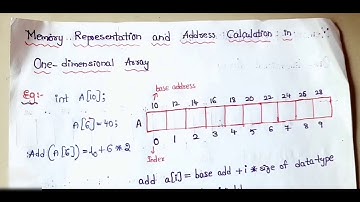 Memory Representation and Address Calculation in
One-dimensional Array
Eg:- int A[10];
base address
10 12 14 16 18 20 22 24 26 28
A[6]=40;
A
0 1 2 3 4 5 6 7 8 9
Index
:Add (A[6]) = 10+6*2
add a[i] = base add + i * size of data-type